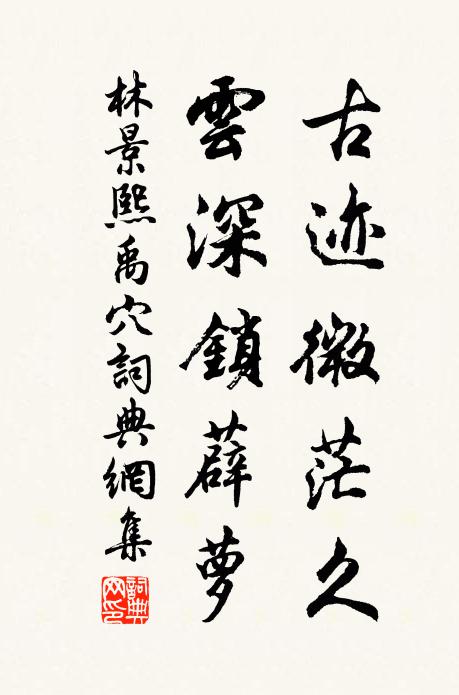 古迹微茫久
雲深鎖薜萝
林景熙禹穴詞典網集
詞典
网印